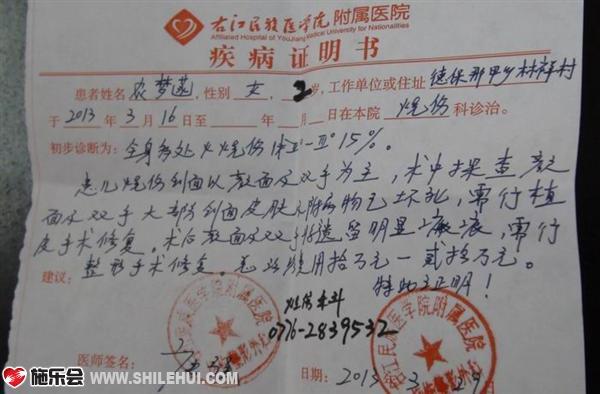 右江民族医学院附属医院
Affiliated Hospital of YouJiang Medical University for Nationalities
疾病证明书
患者姓名农梦 ,性别 女 ,2岁,工作单位或住址德保那甲乡 村
于2013年3月16日至 年 月 日在本院 烧伤 科诊治。
初步诊断为:全身多处火烧伤 Ⅱ°-Ⅲ°15%。
患儿烧伤创面以颜面及双手为主,术中探查颜
面及双手大部份创面皮肤及附属物已坏死,需行植
皮手术修复。术后颜面及双手将遗留明显瘢痕,需行
整形手术修复。 费用拾万元-贰拾万元。
建议: 特此证明!
0776-2839532
医师签名:
日期:2013 3 29
施乐会 WWW.SHILEHUI.COM